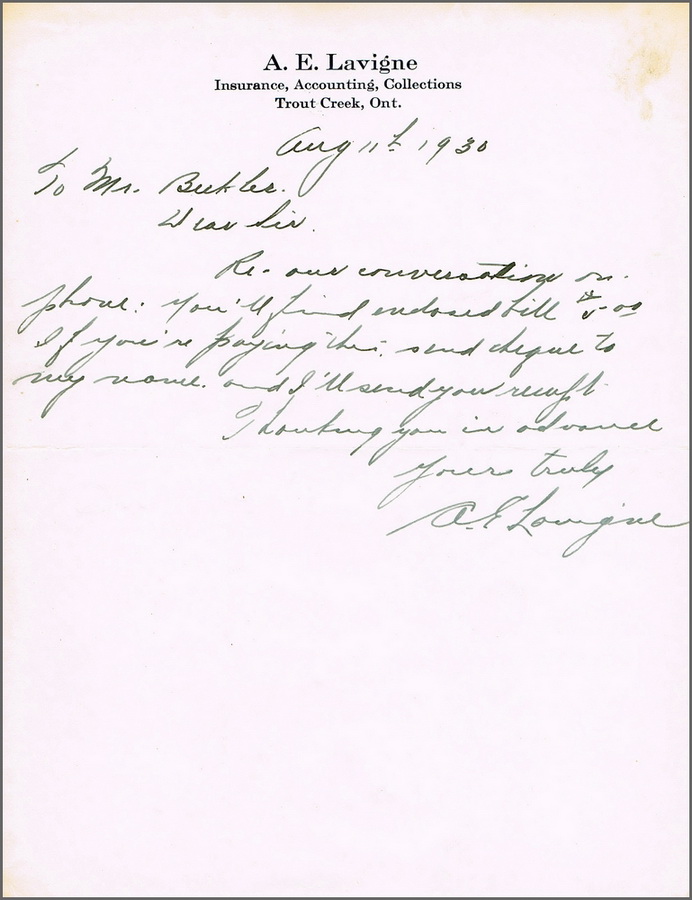 A. E. Lavigne
Insurance, Accounting, Collections
Trout Creek, Ont.
Aug 11th 1930
To Mr.
Dear Sir.
Re- our conversation on-
phone: You'll find enclosed bill $5.00
If you're paying this, send cheque to
my name. and I'll send you receipt
Thanking you in advance
Yours truly
A.E Lavigne